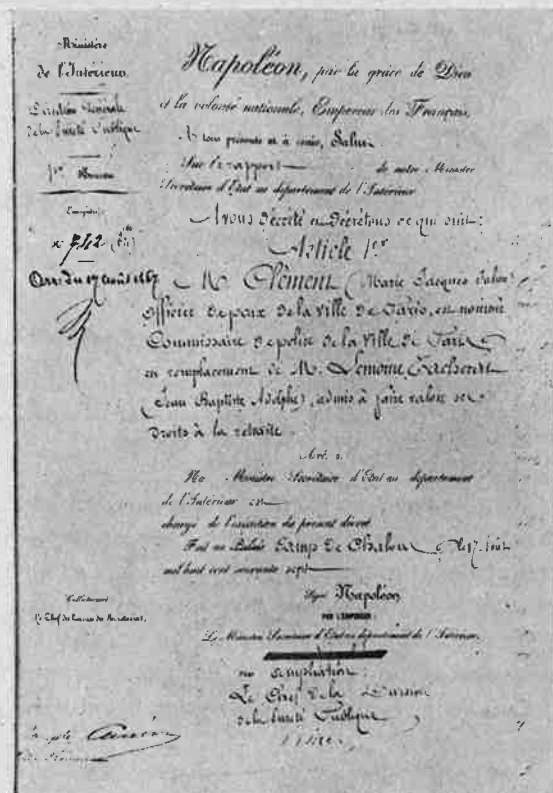 Ministère
de l'Intérieur
Direction Générale
de la Sureté Publique
1er Bureau
n° 742
Arr. du 17 août 1867
Napoléon, par la grâce de Dieu
et la volonté nationale, Empereur des Français,
A tous présents et à venir, Salut.
Sur le rapport de notre Ministre
Secrétaire d'Etat au département de l'Intérieur
Avons Décrété et Décrétons ce qui suit:
Article 1er
M. Clément (Marie Jacques
Officier de paix de la Ville de Paris, est nommé
Commissaire de police de la Ville de Paris
en remplacement de M. Lemoine
(Jean Baptiste Adolphe), admis à faire valoir ses
droits à la retraite.
Art. 2.
Ministre Secrétaire d'Etat au département
de l'Intérieur est
chargé de l'exécution du présent décret
Fait au Palais Camp de Chalons, le 17 août
mil huit cent soixante sept
Signé Napoléon
PAR L'EMPEREUR:
Le Ministre Secrétaire d'Etat au département de l'Intérieur,
Pour ampliation:
Le Chef de la Division
de la Sureté Publique
Le Chef du Bureau du Secrétariat,